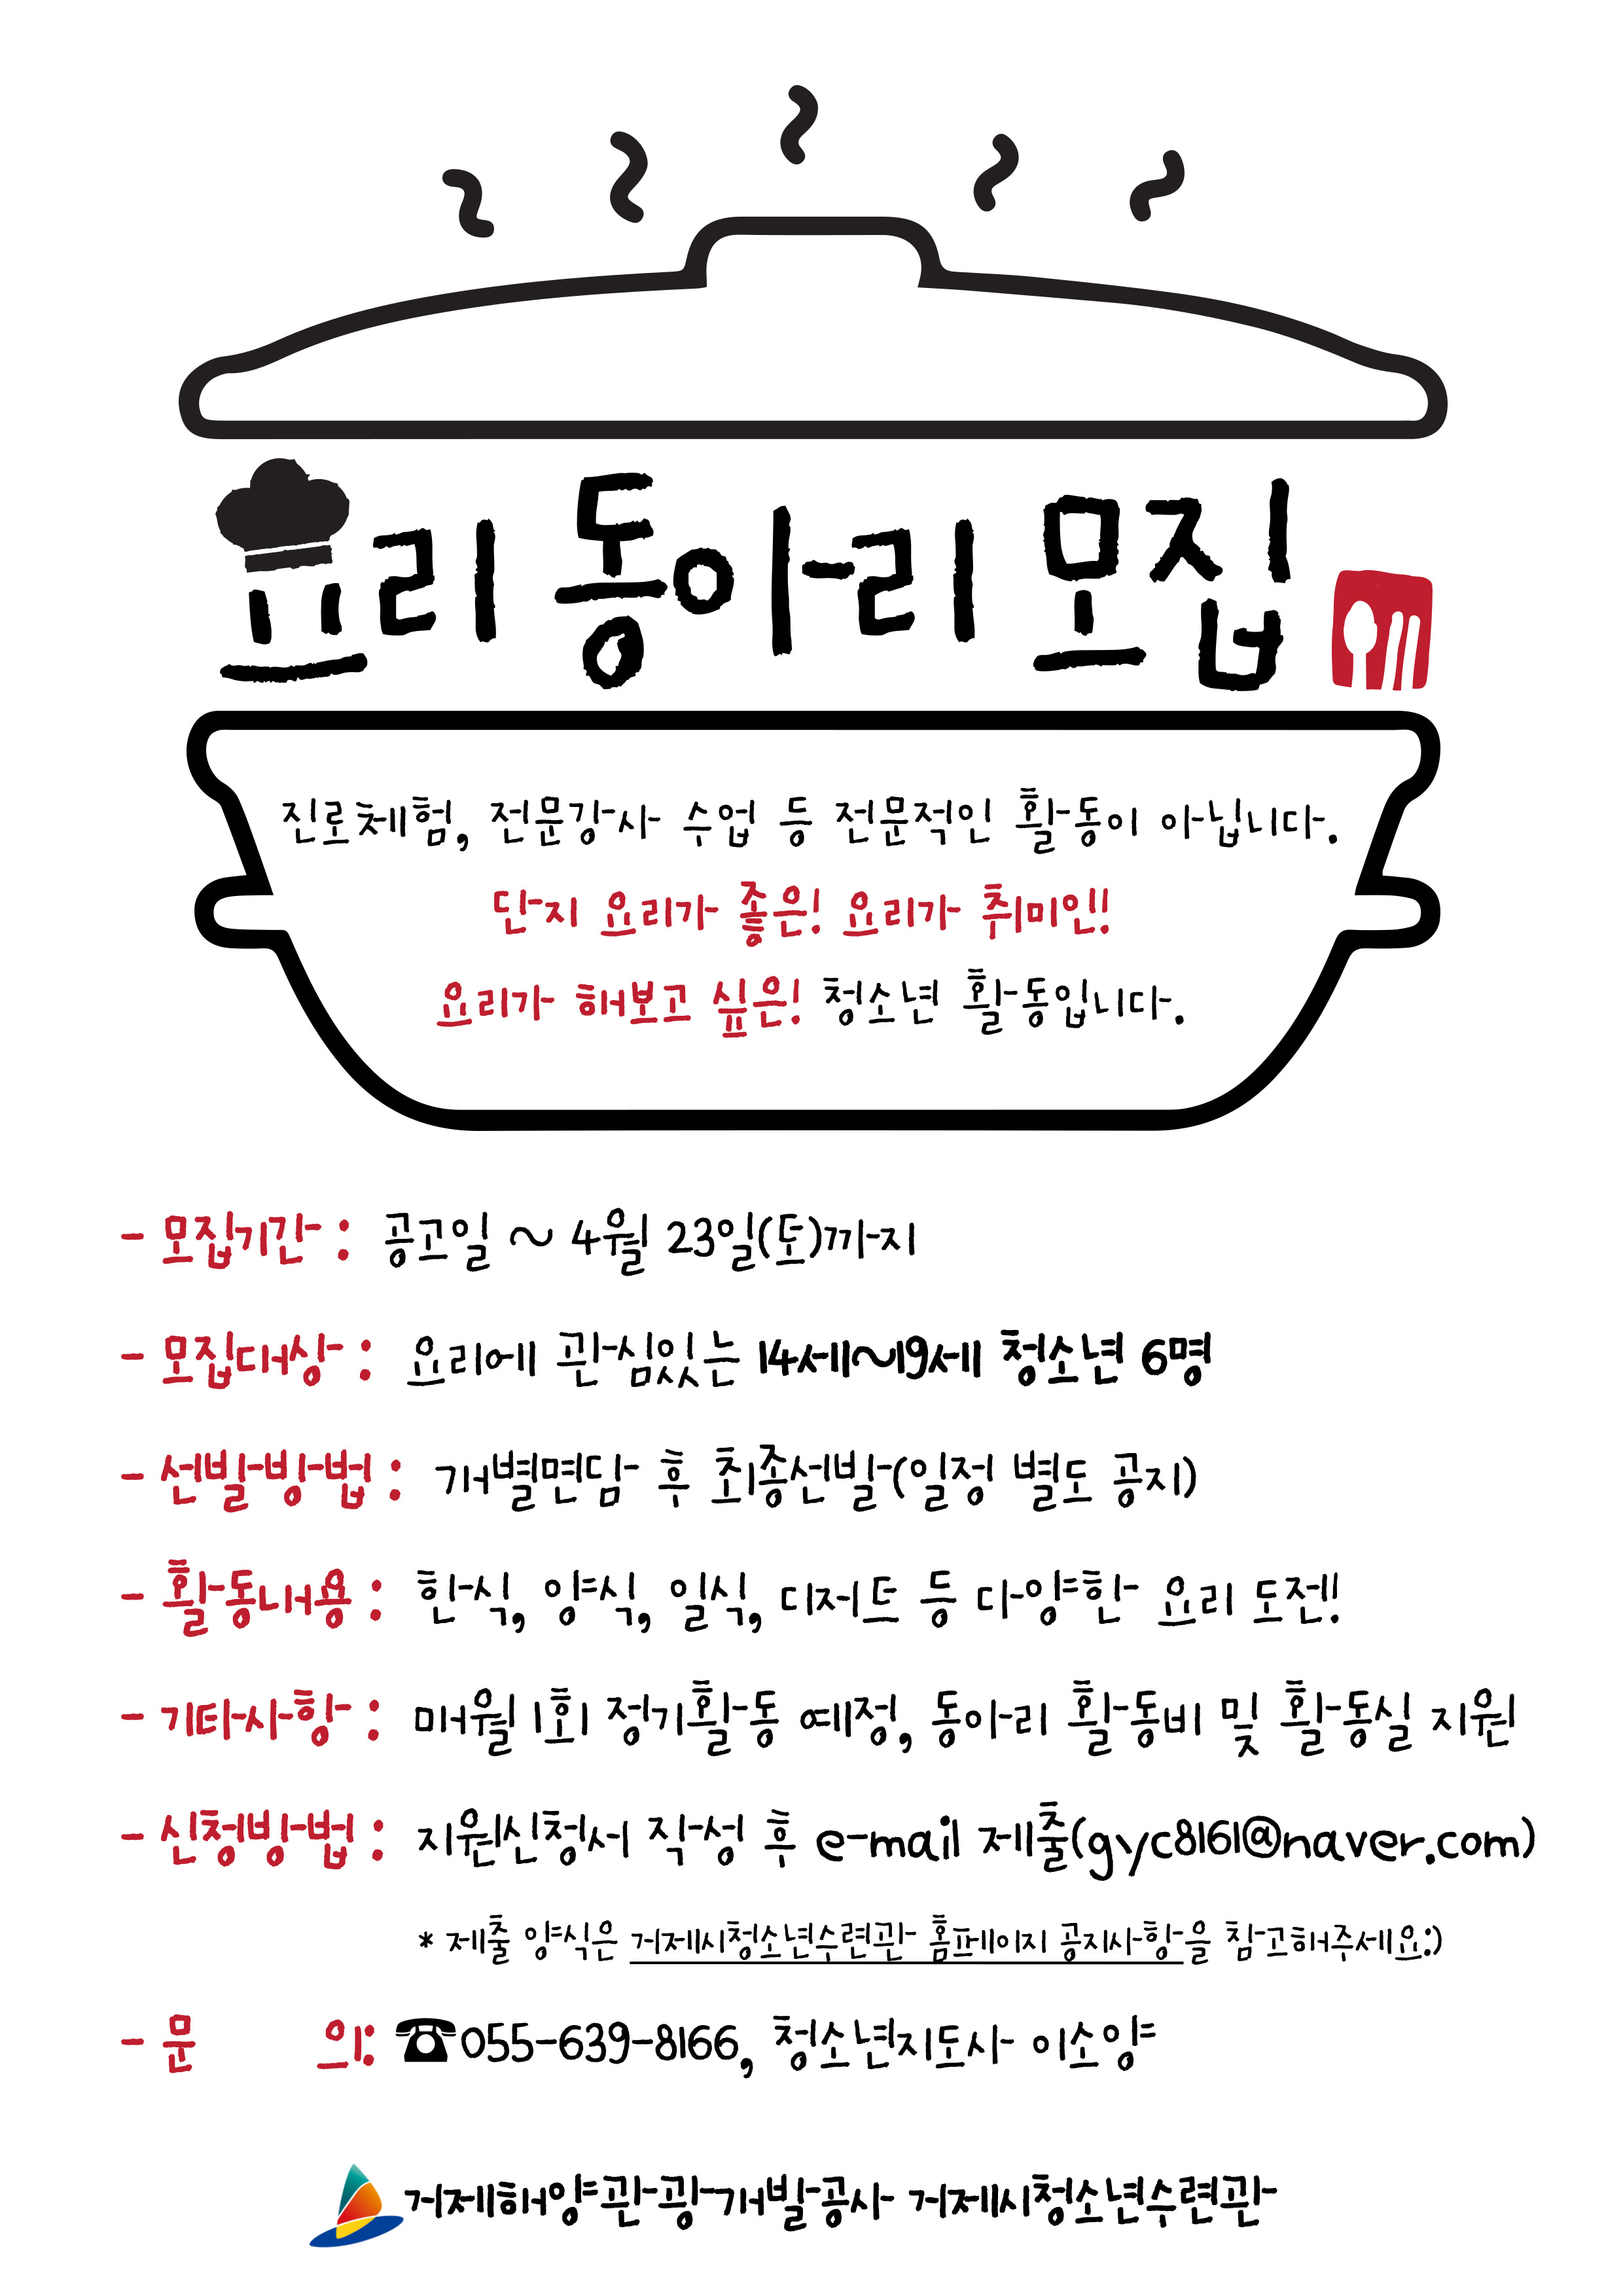 요리 동아리 모집
진로체험, 전문강사 수업 등 전문적인 활동이 아닙니다.
단지 요리가 좋은! 요리가 취미인!
요리가 해보고 싶은! 청소년 활동입니다.
- 모집기간 : 공고일 ~ 4월 23일(토)까지
- 모집대상 : 요리에 관심있는 14세~19세 청소년 6명
- 선발방법 : 개별면담 후 최종선발(일정 별도 공지)
- 활동내용 : 한식, 양식, 일식, 디저트 등 다양한 요리 도전!
- 기타사항 : 매월 1회 정기활동 예정, 동아리 활동비 및 활동실 지원
- 신청방법 : 지원신청서 작성 후 e-mail 제출(gyc8161@naver.com)
* 제출 양식은 거제시청소년수련관 홈페이지 공지사항을 참고해주세요:)
- 문 의: ☎055-639-8166, 청소년지도사 이소양
거제해양관광개발공사 거제시청소년수련관